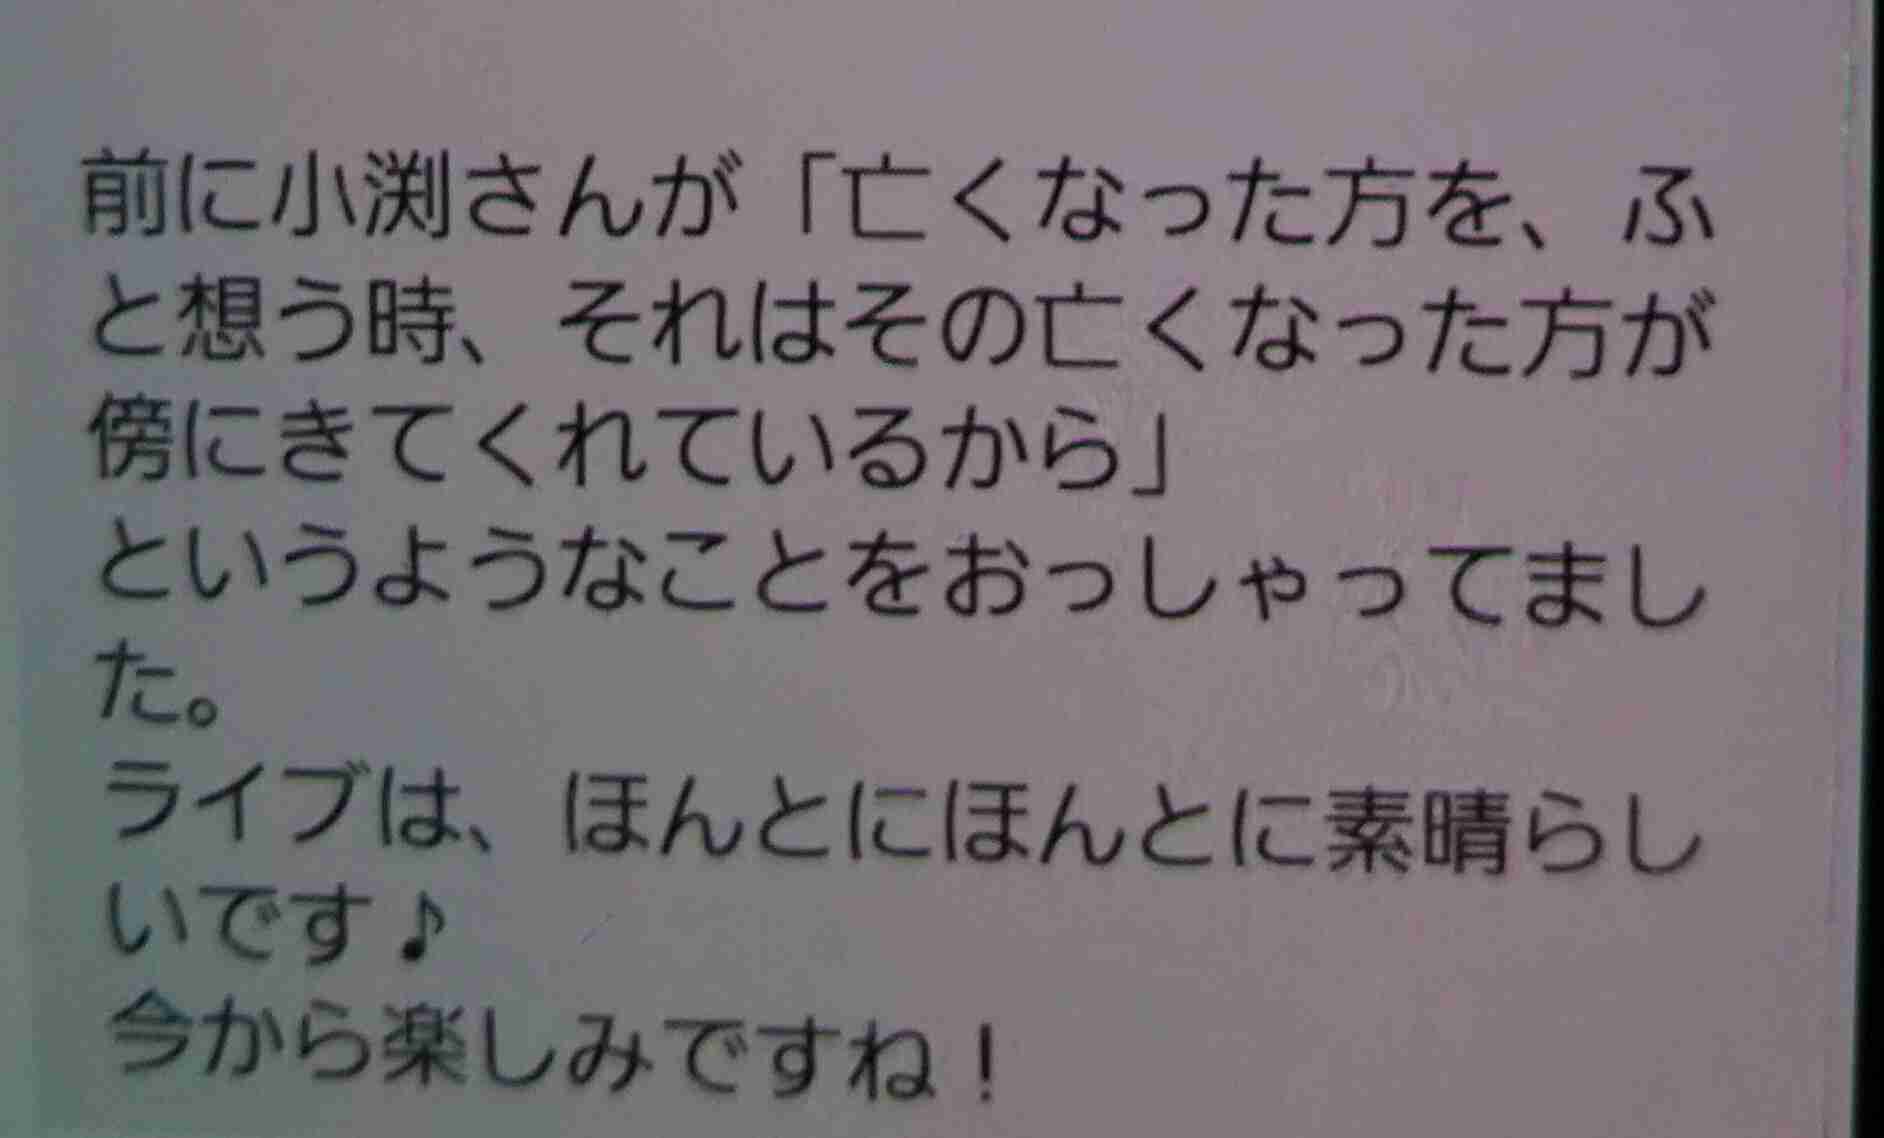 前に小渕さんが「亡くなった方を、ふ
と想う時、それはその亡くなった方が
傍にきてくれているから」
というようなことをおっしゃってまし
た。
ライブは、ほんとにほんとに素晴らし
いです♪
今から楽しみですね！